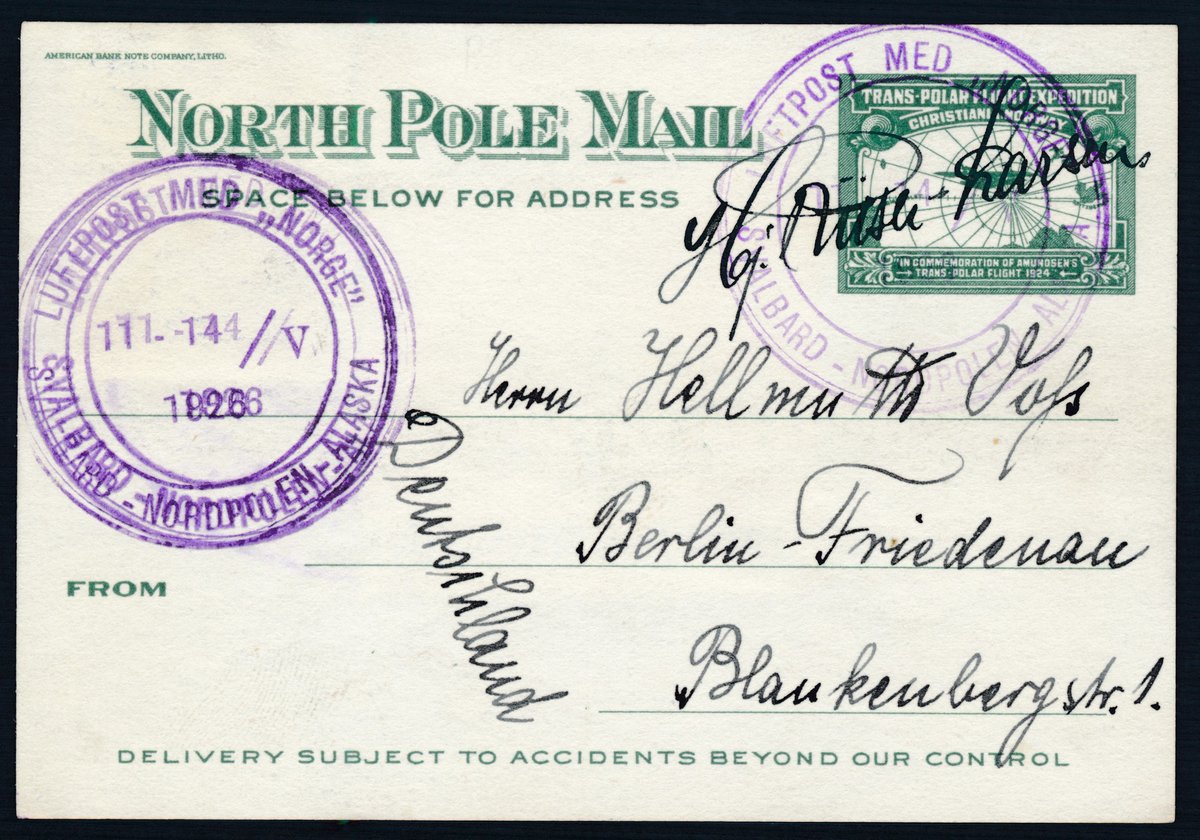 AMERICAN BANK NOTE COMPANY, LITHO.
NORTH POLE MAIL
SPACE BELOW FOR ADDRESS
TRANS-POLAR FLIGHT EXPEDITION
CHRISTIANIA NORWAY
"IN COMMEMORATION OF AMUNDSEN'S
TRANS-POLAR FLIGHT 1924"
LUFTPOST MED „NORGE"
SVALBARD - NORDPOLEN - ALASKA
Hj. Riiser-Larsen
LUFTPOST MED „NORGE"
11.-14/V
1926
SVALBARD - NORDPOLEN - ALASKA
Herrn Hellmuth Voss
Berlin-Friedenau
Blankenbergstr. 1.
Deutschland
FROM
DELIVERY SUBJECT TO ACCIDENTS BEYOND OUR CONTROL